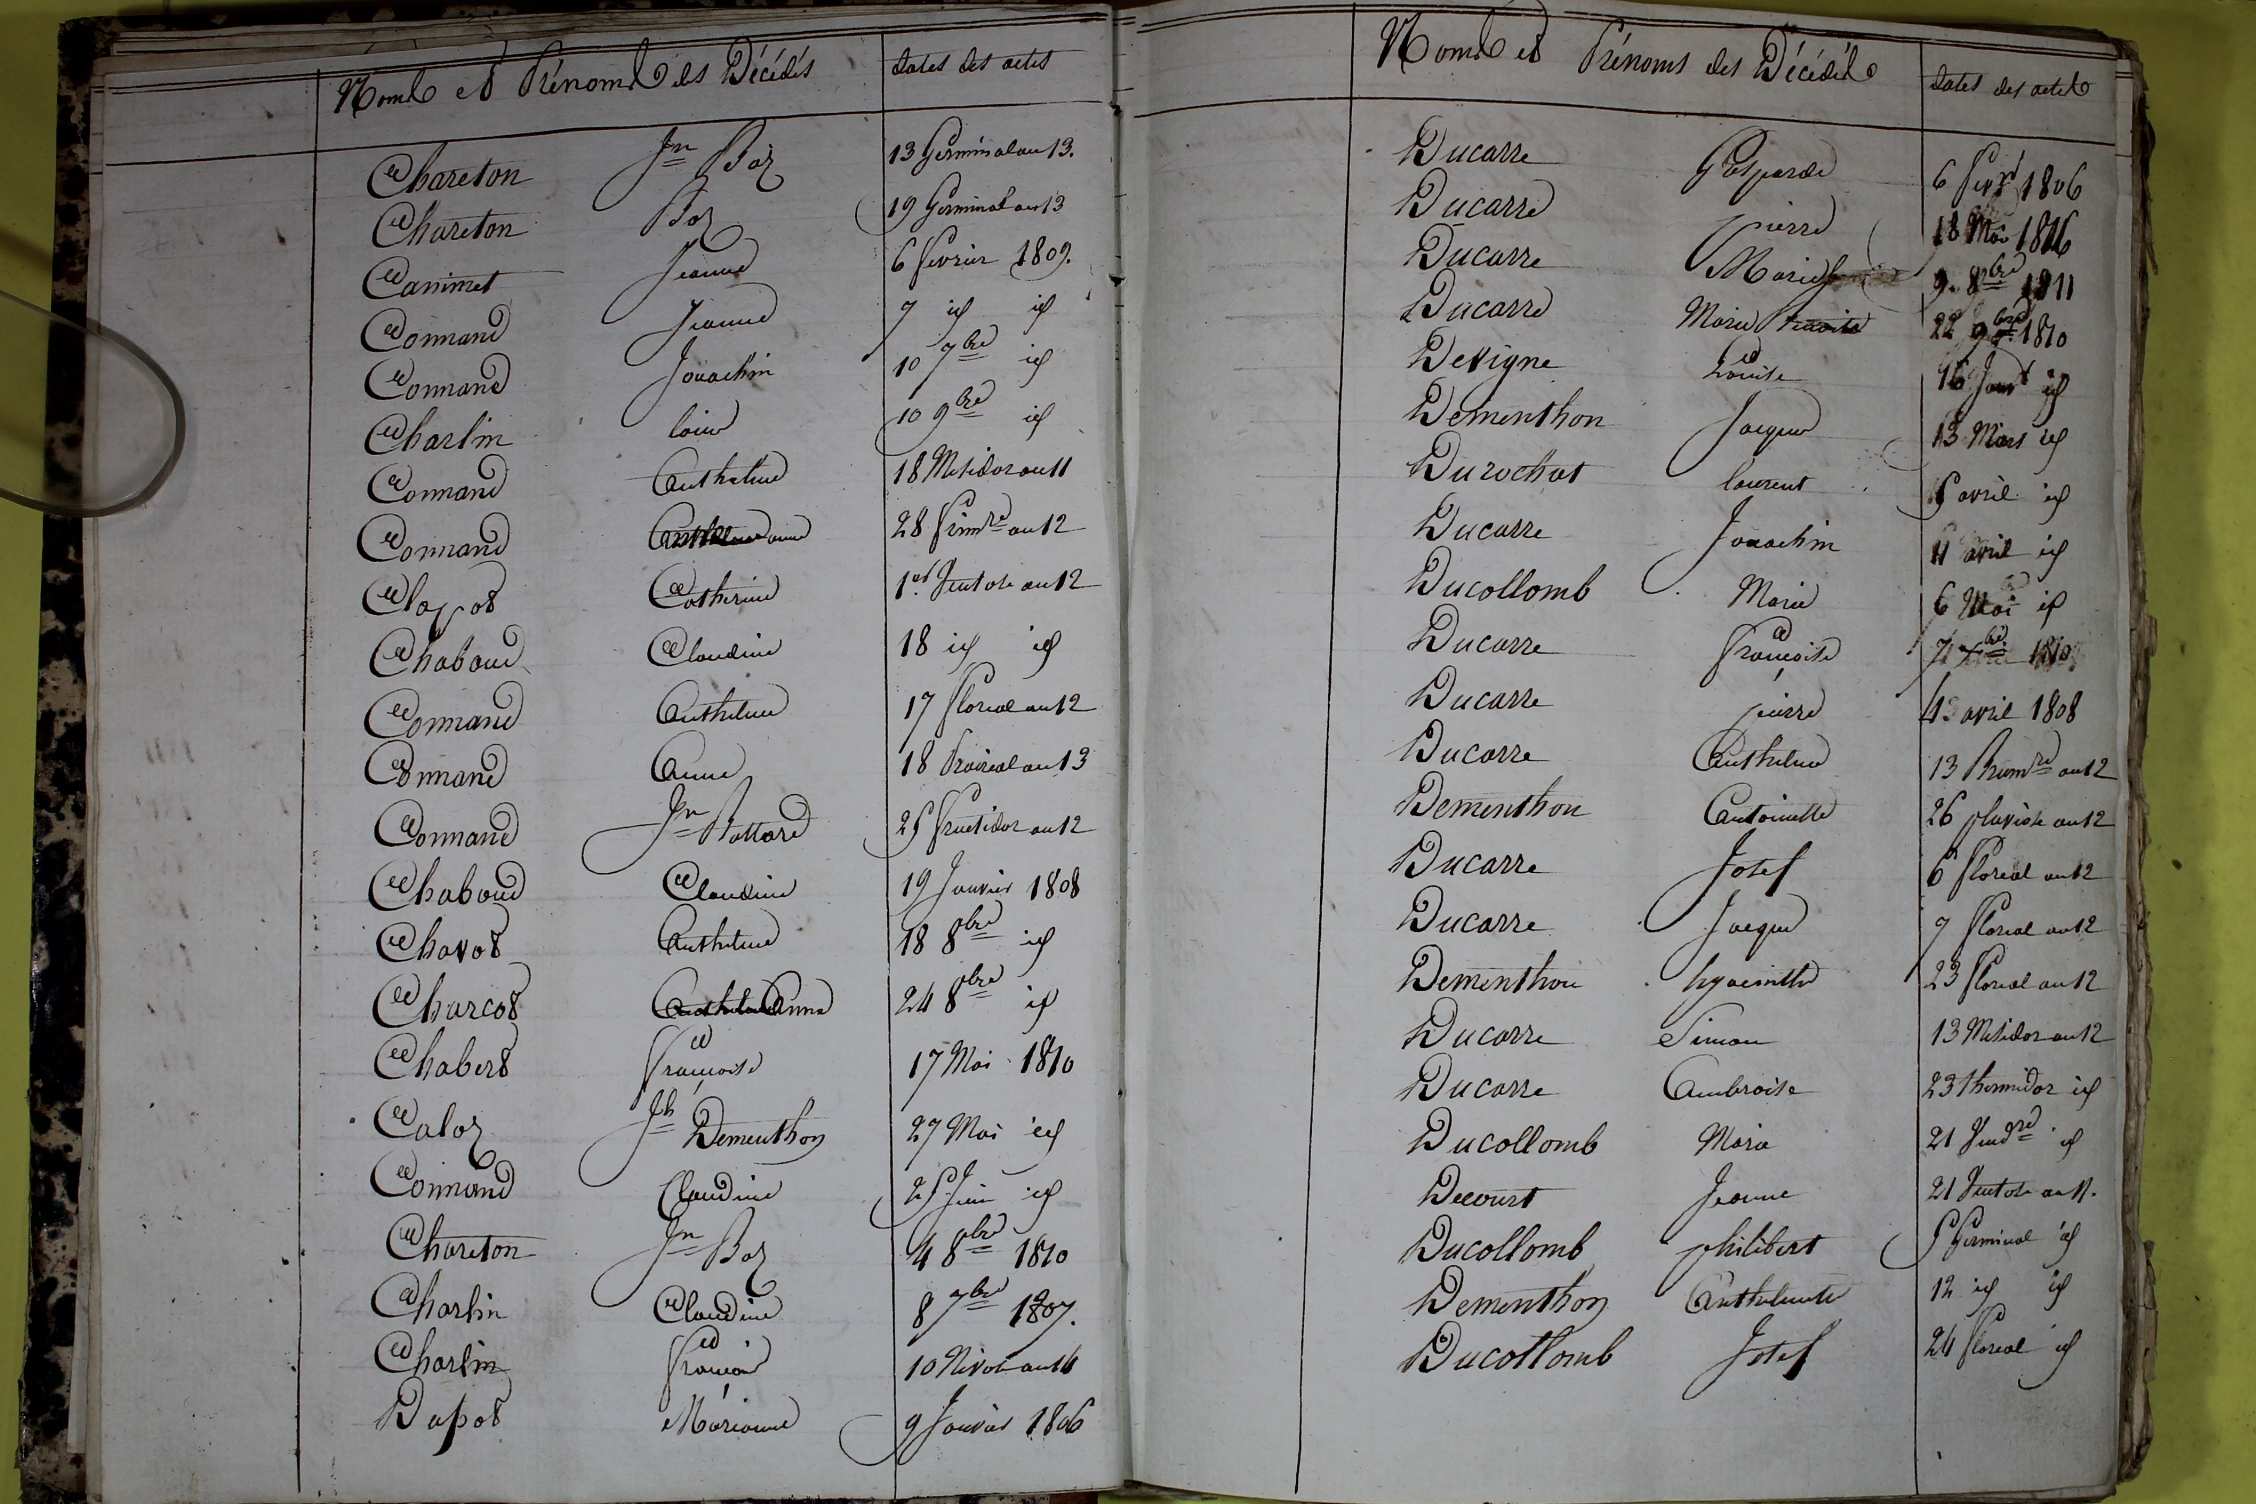 Noms et Prénoms des Décédés dates des actes
Chareton Jn Bte 13 Germinal an 13.
Chareton Bte 19 Germinal an 13
Canimet Jeanne 6 fevrier 1809.
Connand Jeanne 7 id id
Connand Jouachin 10 7bre id
Charlin louis 10 9bre id
Connand Anthelme 18 Mesidor an 11
Connand anne 28 frimre an 12
Clapot Catherine 1er Ventose an 12
Chaboud Claudine 18 id id
Connand Anthelme 17 floreal an 12
Connand Anne 18 Praireal an 13
Connand Jn 25 fructidor an 12
Chaboud Claudine 19 Janvier 1808
Chavot Anthelme 18 8bre id
Charcot Anne 24 8bre id
Chabert Francoise 17 Mai 1810
Jh Dementhon 27 Mai id
Connand Claudine 25 Juin id
Chareton Jn Bte 4 8bre 1810
Charlin Claudine 8 7bre 1807.
Charlin François 10 Nivose an 14
Dapot Marianne 9 Janvier 1806
Noms et Prénoms des Décédés dates des actes
Ducarre Gasparde 6 fevr 1806
Ducarre pierre 18 Mai 1816
Ducarre Marie 9. 8bre 1811
Ducarre Marie 22 9bre 1810
Devigne Louise 16 Janv id
Dementhon Jacques 13 Mars id
Durochat laurent avril id
Ducarre Jouachin 11 avril id
Ducollomb Marie 6 Mai id
Ducarre françoise 1810
Ducarre pierre 13 avril 1808
Ducarre Anthelme 13 Brumre an 12
Dementhon Antoinette 26 pluviose an 12
Ducarre Josef 6 floreal an 12
Ducarre Jacques 7 floreal an 12
Dementhon hyacinthe 23 floreal an 12
Ducarre Simon 13 Mesidor an 12
Ducarre Ambroise 23 thermidor id
Ducollomb Marie 21 Vendre id
Decourt Jeanne 21 Ventose an 11.
Ducollomb philibert 5 Germinal id
Dementhon Anthelmete 12 id id
Ducollomb Josef 24 floreal id